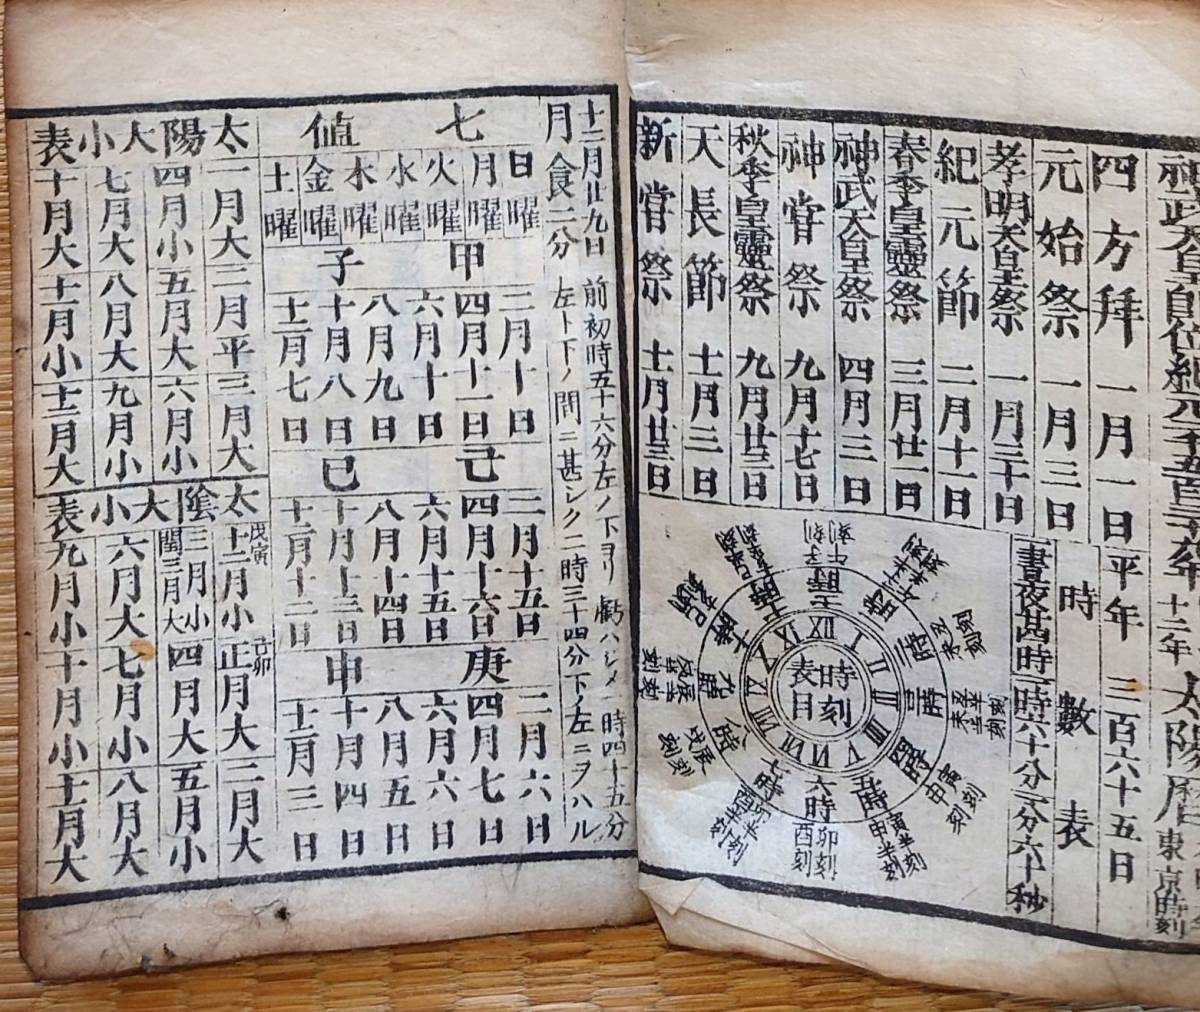 神武天皇即位紀元二千五百三十九年
十二年
太陽暦
東京時刻
四方拜 一月一日
元始祭 一月三日
孝明天皇祭 一月三十日
紀元節 二月十一日
春季皇靈祭 三月廿一日
神武天皇祭 四月三日
神嘗祭 九月十七日
秋季皇靈祭 九月廿三日
天長節 十一月三日
新嘗祭 十一月廿三日
平年 三百六十五日
時數表
一晝夜廿四時一時六十分一分六十秒
時刻表目
I II III IIII V VI VII VIII IX X XI XII
六時
卯刻
酉刻
寅半刻
申半刻
寅刻
申刻
十二月廿九日 前初時五十六分左ノ下ヨリ虧ハジメ一時四十五分
月食二分 左ト下ノ間ニ甚シク二時三十四分下ノ左ニヲハル
七値
日曜
月曜
火曜
水曜
木曜
金曜
土曜
甲子
二月十日
四月十一日
六月十日
八月九日
十月八日
十二月七日
己巳
二月十五日
四月十六日
六月十五日
八月十四日
十月十三日
十二月十二日
庚申
二月六日
四月七日
六月六日
八月五日
十月四日
十二月三日
太陽大小表
一月大 二月平 三月大
四月小 五月大 六月小
七月大 八月大 九月小
十月大 十一月小 十二月大
太陰大小表
戊寅 十二月小 己卯 正月大 二月大
三月小 閏三月大 四月大 五月小
六月大 七月小 八月大
九月小 十月小 十一月大